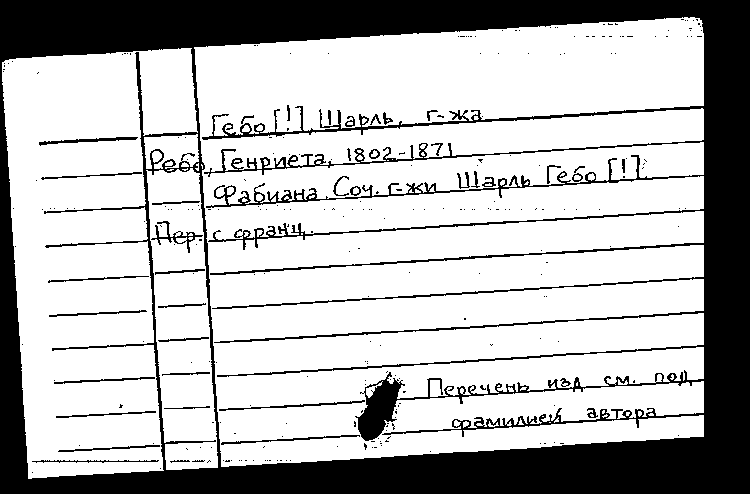 Гебо [!], Шарль, г-жа
Ребо, Генриета, 1802-1871
Фабиана. Соч. г-жи Шарль Гебо [!]
Пер. с франц.
Перечень изд. см. под
фамилией автора